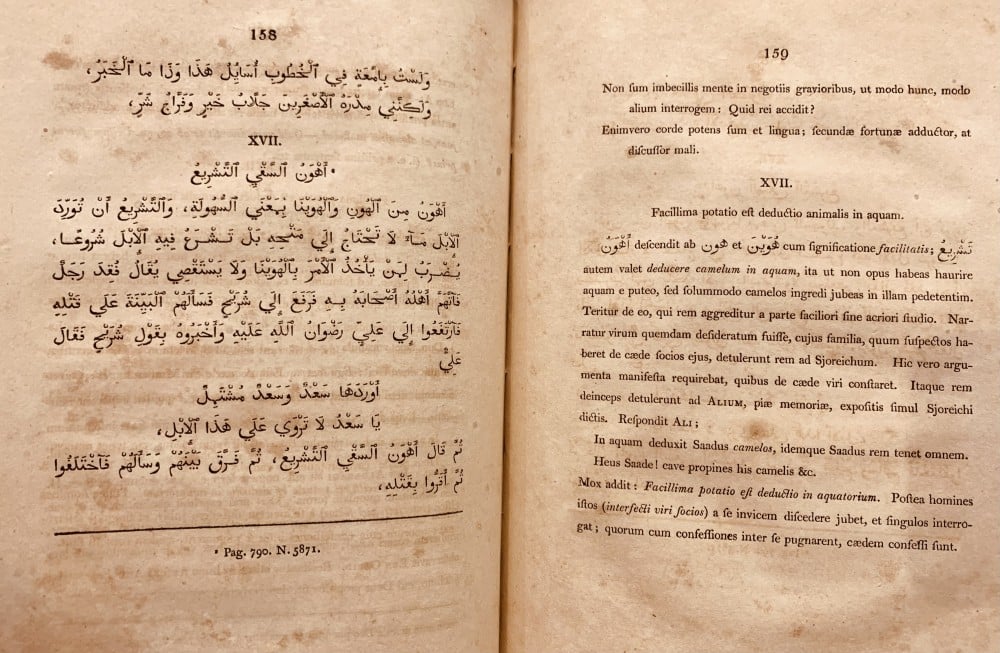 158
وَلَسْتُ بِإِمَّعَةٍ فِي ٱلْخُطُوبِ أُسَايِلُ هَٰذَا وَذَا مَا ٱلْخَبَرُ،
وَلَٰكِنَّنِي مِدْرَهُ ٱلْأَصْغَرَيْنِ جَلَّابُ خَيْرٍ وَفَرَّاجُ شَرٍّ،
XVII.
* أَهْوَنُ ٱلسَّقْيِ ٱلتَّشْرِيعُ
أَهْوَنُ مِنَ ٱلْهَوْنِ وَٱلْهُوَيْنَا بِمَعْنَي ٱلسُّهُولَةِ، وَٱلتَّشْرِيعُ أَنْ تُورِدَ
ٱلْإِبْلَ مَآءً لَا تَحْتَاجُ إِلَي مَتْحِهِ بَلْ تَشْرَعُ فِيهِ ٱلْإِبْلُ شُرُوعًا،
يُضْرَبُ لِمَنْ يَأْخُذُ ٱلْأَمْرَ بِٱلْهُوَيْنَا وَلَا يَسْتَقْصِي يُقَالُ فُقِدَ رَجُلٌ
فَٱتَّهَمَ أَهْلُهُ أَصْحَابَهُ بِهِ فَرُفِعَ إِلَي شُرَيْحٍ فَسَأَلَهُمُ ٱلْبَيِّنَةَ عَلَي قَتْلِهِ
فَٱرْتَفَعُوا إِلَي عَلِيٍّ رِضْوَانُ ٱللَّهِ عَلَيْهِ وَأَخْبَرُوهُ بِقَوْلِ شُرَيْحٍ فَقَالَ
عَلِيٌّ
أَوْرَدَهَا سَعْدٌ وَسَعْدٌ مُشْتَمِلٌ
يَا سَعْدُ لَا تَرْوَي عَلَي هَٰذَا ٱلْإِبْلِ،
ثُمَّ قَالَ أَهْوَنُ ٱلسَّقْيِ ٱلتَّشْرِيعُ، ثُمَّ فَرَّقَ بَيْنَهُمْ وَسَأَلَهُمْ فَٱخْتَلَفُوا
ثُمَّ أَقَرُّوا بِقَتْلِهِ،
* Pag. 790. N. 5871.
159
Non ſum imbecillis mente in negotiis gravioribus, ut modo hunc, modo
alium interrogem: Quid rei accidit?
Enimvero corde potens ſum et lingua; ſecundæ fortunæ adductor, at
diſcuſſor mali.
XVII.
Facillima potatio eſt deductio animalis in aquam.
أَهْوَنُ deſcendit ab هون et هُوَيْنَ cum ſignificatione facilitatis; تَشْرِيعُ
autem valet deducere camelum in aquam, ita ut non opus habeas haurire
aquam e puteo, ſed ſolummodo camelos ingredi jubeas in illam pedetentim.
Teritur de eo, qui rem aggreditur a parte faciliori ſine acriori ſtudio. Nar-
ratur virum quemdam deſideratum fuiſſe, cujus familia, quum ſuſpectos ha-
beret de cæde ſocios ejus, detulerunt rem ad Sjoreichum. Hic vero argu-
menta manifeſta requirebat, quibus de cæde viri conſtaret. Itaque rem
deinceps detulerunt ad ALIUM, piæ memoriæ, expoſitis ſimul Sjoreichi
dictis. Reſpondit ALI;
In aquam deduxit Saadus camelos, idemque Saadus rem tenet omnem.
Heus Saade! cave propines his camelis &c.
Mox addit: Facillima potatio eſt deductio in aquatorium. Poſtea homines
iſtos (interfecti viri ſocios) a ſe invicem diſcedere jubet, et ſingulos interro-
gat; quorum cum confeſſiones inter ſe pugnarent, cædem confeſſi ſunt.